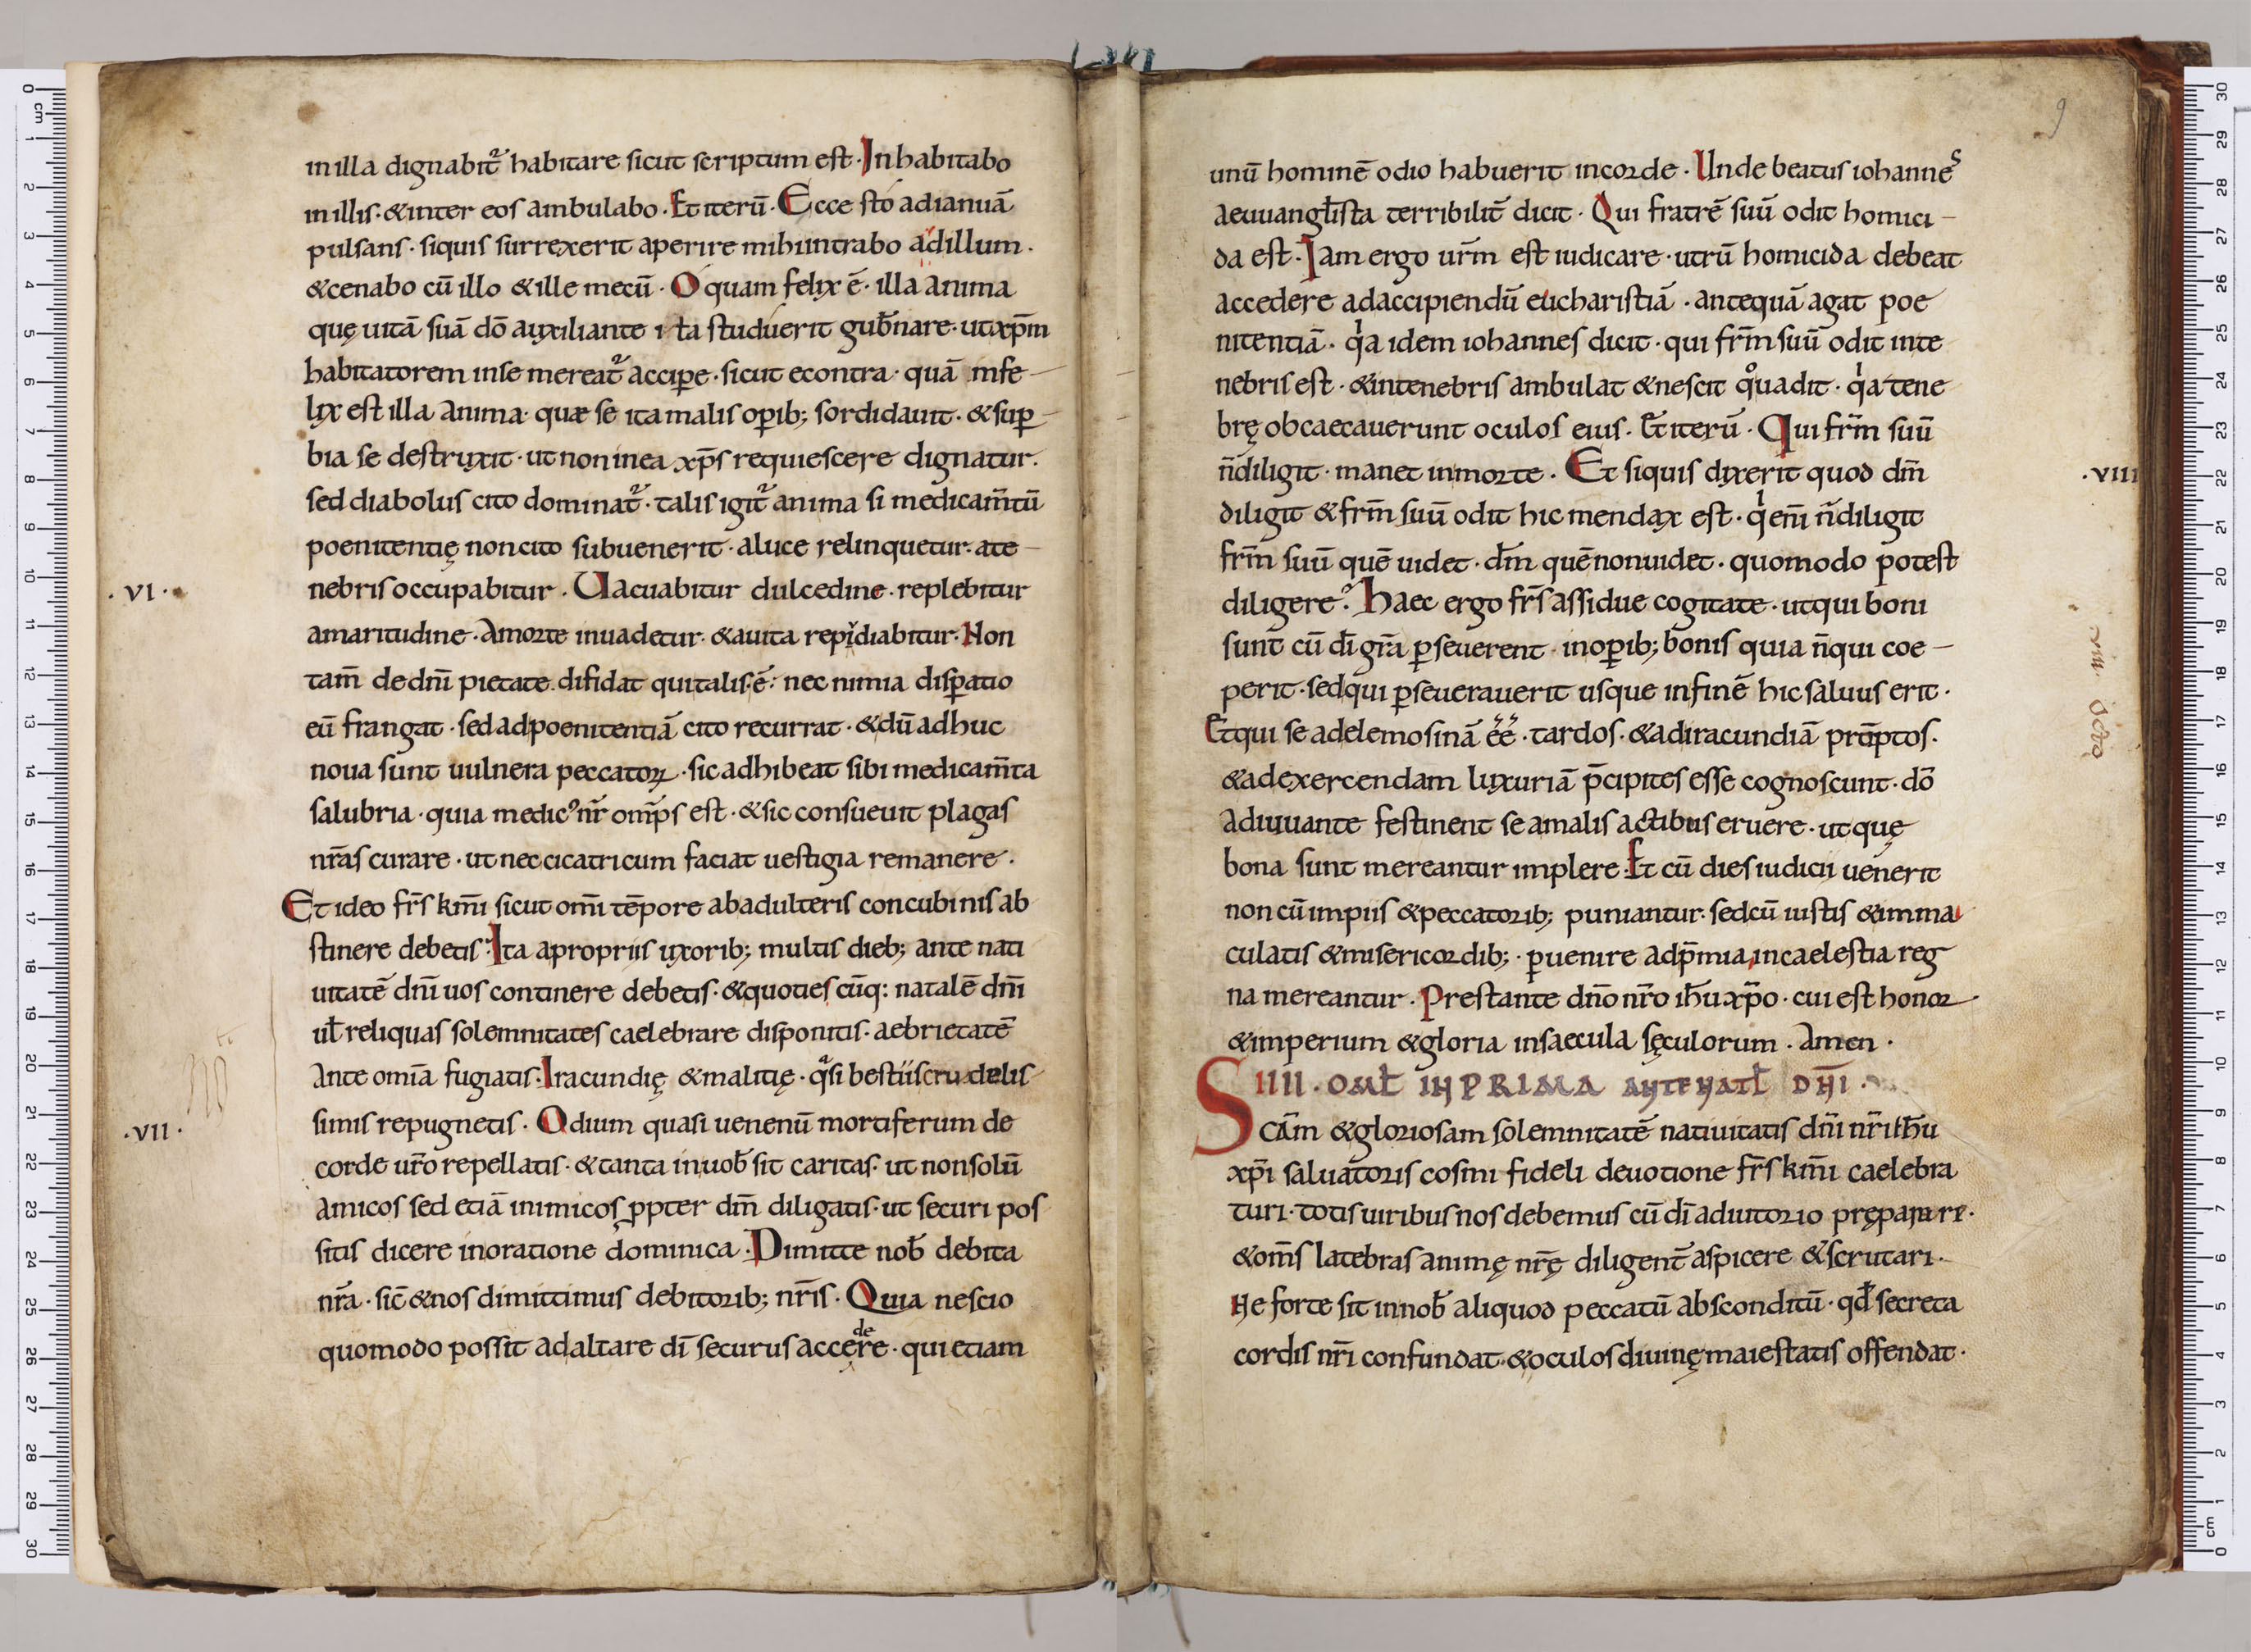 in illa dignabit᷑ habitare sicut scriptum est · Inhabitabo
in illis · & inter eos ambulabo · Et iterū · Ecce sto ad ianuā
pulsans · siquis surrexerit aperire mihi intrabo ad illum ·
& cenabo cū illo & ille mecū · O quam felix ē · illa anima
quę uitā suā dō auxiliante ita studuerit gub̄nare · ut xp̄m
habitatorem in se mereat᷑ accipe · sicut econtra · quā infe
lix est illa anima · quae se ita malis opib; sordidauit · & sup
bia se destruxit · ut non in ea xp̄s requiescere dignatur ·
sed diabolus cito dominat᷑ · talis igit᷑ anima si medicam̄tū
poenitentię non cito subuenerit · a luce relinquetur · a te
·VI·
nebris occupabitur · Uacuabitur dulcedine · replebitur
amaritudine · A morte inuadetur · & a uita repudiabitur · Non
tam̄ de dn̄i pietate difidat qui talis ē · nec nimia dispatio
eū frangat · sed ad poenitentiā cito recurrat · & dū adhuc
noua sunt uulnera peccatoꝝ · sic adhibeat sibi medicam̄ta
salubria · quia medic᾽ nr̄ om̄ps est · & sic consueuit plagas
nr̄as curare · ut nec cicatricum faciat uestigia remanere ·
Et ideo fr̄s km̄i sicut om̄i tēpore ab adulteris concubinis ab
stinere debetis · Ita a propriis uxorib; multis dieb; ante nati
uitatē dn̄i uos continere debetis · & quoties cūq: natalē dn̄i
ul̄ reliquas solemnitates caelebrare disponitis · aebrietatē
ante omīa fugiatis · Iracundię & malitię · qͣsi bestiis crudelis
·VII·
simis repugnetis · Odium quasi uenenū mortiferum de
corde ur̄o repellatis · & tanta in uob̄ sit caritas · ut non solū
amicos sed etiā inimicos ppter dm̄ diligatis · ut securi pos
sitis dicere in oratione dominica · Dimitte nob̄ debita
nr̄a · sic̄ & nos dimittimus debitorib; nr̄is · Quia nescio
quomodo possit ad altare dī securus accedere · qui etiam
9
unū hominē odio habuerit in corde · Unde beatus iohannes
aeuuangl̄ista terribilit̄ dicit · Qui fratrē suū odit homici
da est · Iam ergo ur̄m est iudicare · utrū homicida debeat
accedere ad accipiendū eucharistiā · antequā agat poe
nitentiā · qͥa idem iohannes dicit · qui fr̄m suū odit in te
nebris est · & in tenebris ambulat & nescit qͦ uadit · qͥa tene
brę obcaecauerunt oculos eius · Et iterū · Qui fr̄m suū
·VIII
n̄ diligit · manet in morte · Et siquis dixerit quod dm̄
diligit & fr̄m suū odit hic mendax est · qͥ eni̅ n̄ diligit
fr̄m suū quē uidet · dm̄ quē non uidet · quomodo potest
diligere? Haec ergo fr̄s assidue cogitate · ut qui boni
sunt cū dī gr̄a pseuerent · in opib; bonis quia n̄ qui coe
perit · sed qui pseuerauerit usque in finē hic saluus erit ·
Et qui se ad elemosinā ēē · tardos · & ad iracundiā prōptos ·
& ad exercendam luxuriā p̄cipites esse cognoscunt · dō
adiuuante festinent se a malis actibus eruere · ut quę
bona sunt mereantur implere · Et cū dies iudicii uenerit
non cū impiis & peccatorib; puniantur · sed cū iustis & imma
culatis & misericordib; · puenire ad p̄mia, in caelestia reg
na mereantur · Prestante dn̄o nr̄o ih̄u xp̄o · cui est honor
& imperium & gloria in saecula sęculorum · Amen ·
IIII · OMĒL IN PRIMA ANTE NATL̄ DN̄I ·
Scām & gloriosam solemnitatē natiuitatis dn̄i nr̄i ih̄u
xp̄i saluatoris cosmi fideli deuotione fr̄s km̄i caelebra
turi · totis uiribus nos debemus cū dī adiutorio pręparare ·
& om̄s latebras animę nr̄ę diligent̄ aspicere & scrutari ·
Ne forte sit in nob̄ aliquod peccatū absconditū · qd̄ secreta
cordis nr̄i confundat · & oculos diuinę maiestatis offendat ·